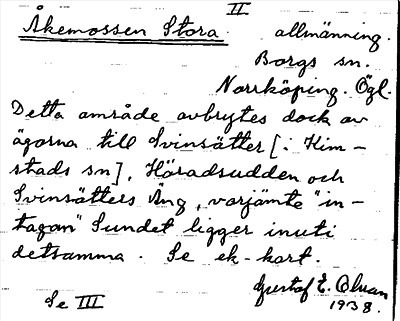 II
Åkemossen Stora. allmänning.
Borgs sn.
Norrköping. Ögl.
Detta område avbrytes dock av
ägorna till Svinsätter [i Kim-
stads sn], Häradsudden och
Svinsätters Äng, varjämte "in-
tagan" Sundet ligger inuti
detsamma. Se ek-kart.
Gustaf E. Olvan
1938.
Se III